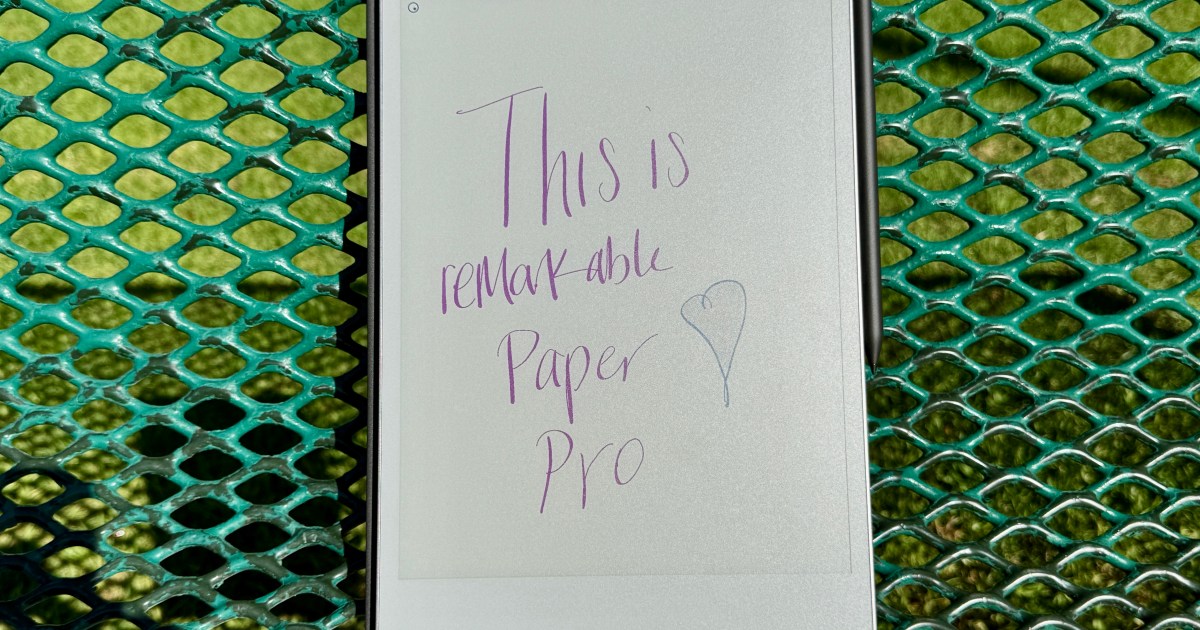 This is
remarkable
Paper
Pro